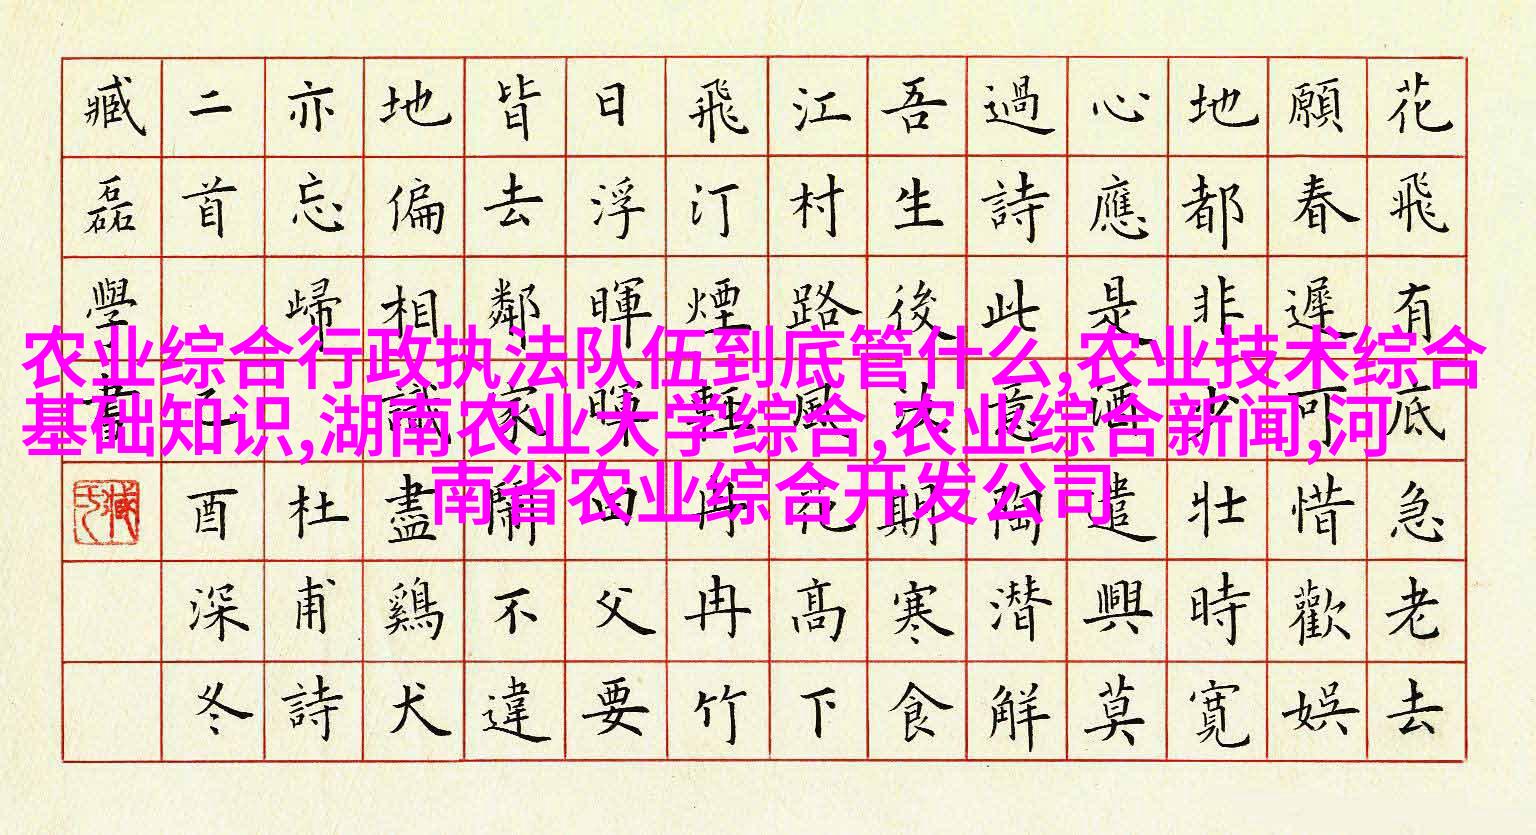 农业综合行政执法队伍到底管什么,农业技术综合
基础知识,湖南农业大学综合,农业综合新闻,河
南省农业综合开发公司
花飛有底急老去
願春遲可惜歡娛
地都非少壯時寬
心應是酒遣興莫
過詩此意陶潛解
吾生後汝期寒食
江村路風花高下
飛汀煙輕冉冉竹
日浮暉暉田父要
皆去鄰家鬧不違
地偏相識盡鷄犬
亦忘歸 杜甫詩
二首 乙酉深冬
臧磊學書